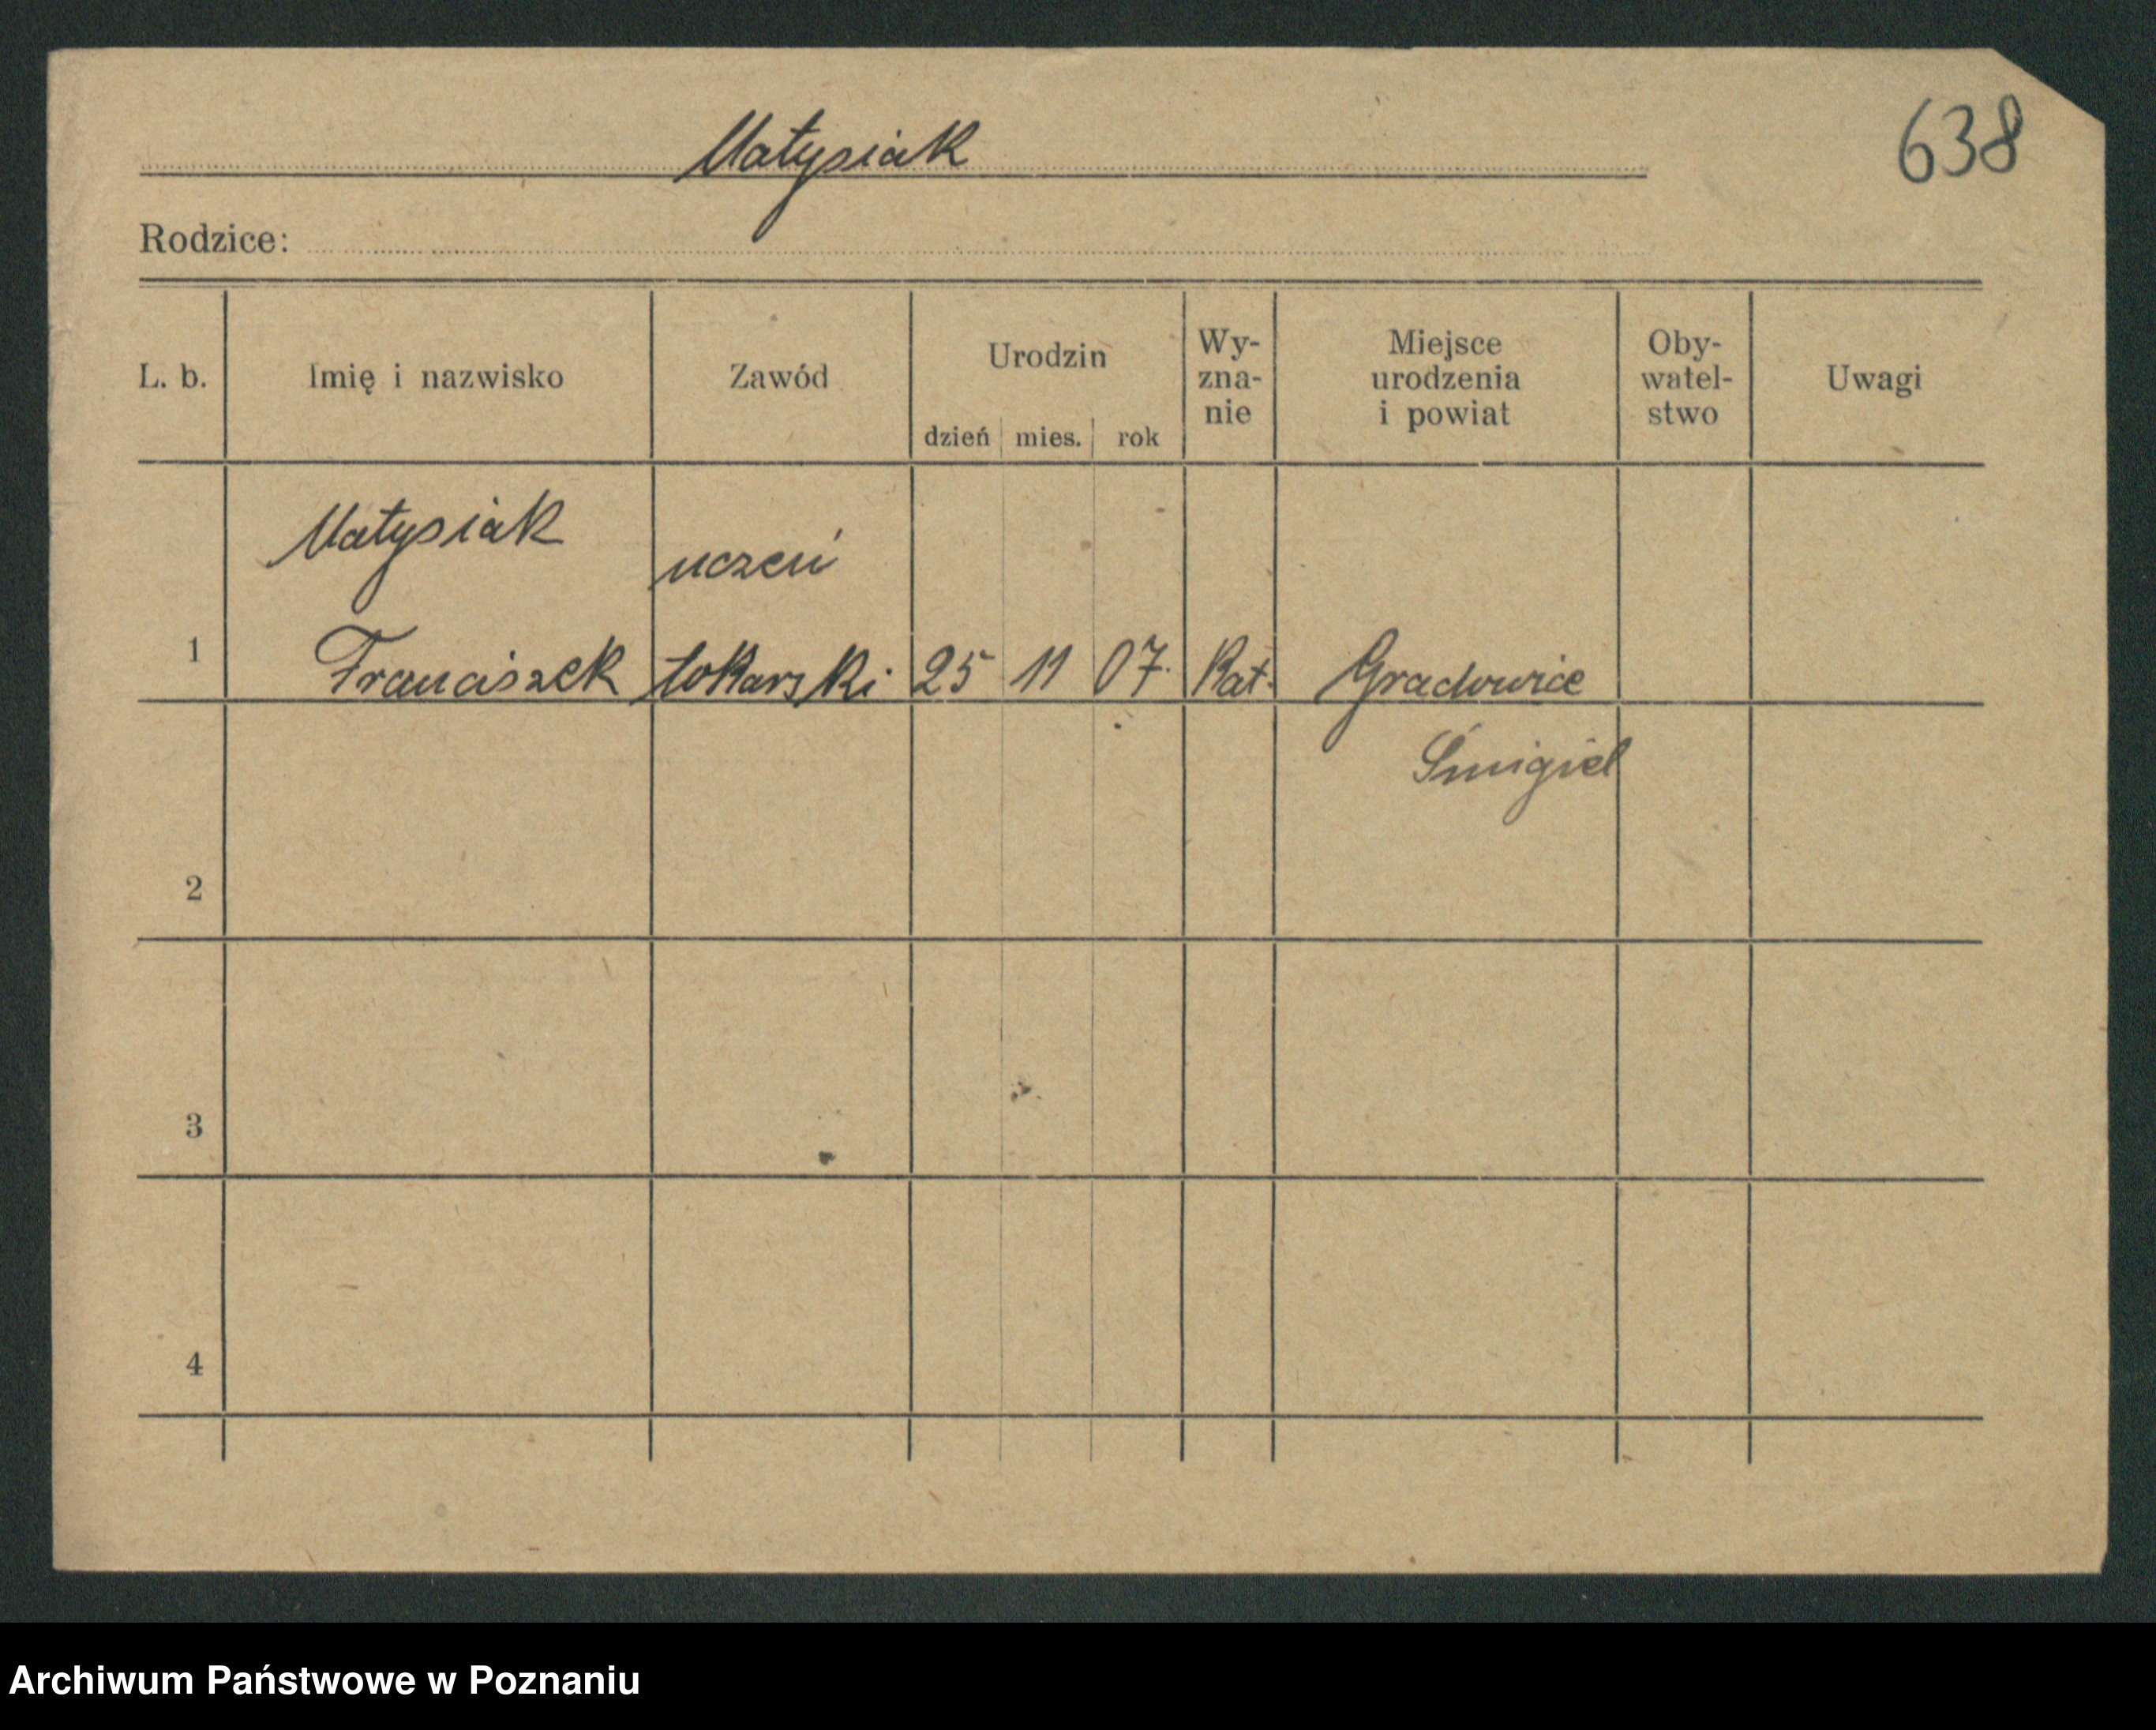 Matysiak
638
Rodzice:
L. b. Imię i nazwisko Zawód Urodzin dzień mies. rok Wy-zna-nie Miejsce urodzenia i powiat Oby-watel-stwo Uwagi
Matysiak uczeń
1 Franciszek tokarski 25 11 07. Kat. Gradowice
Śmigiel
2
3
4
Archiwum Państwowe w Poznaniu